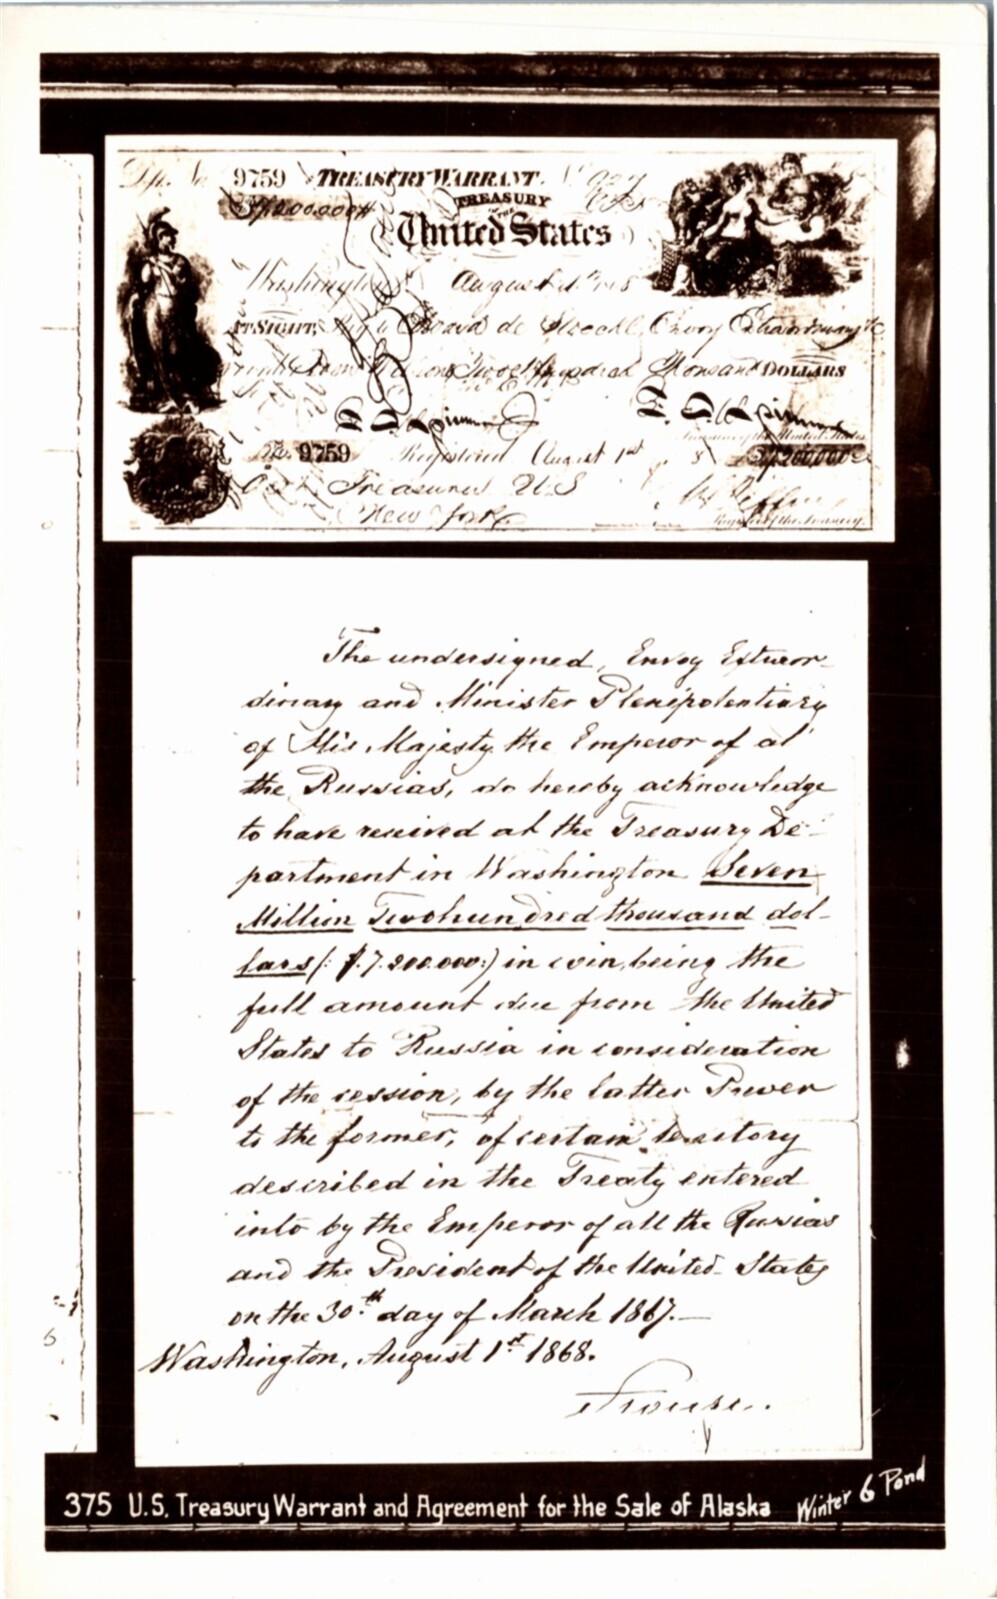 9759 TREASURY WARRANT.
$7,200.000
TREASURY
OF THE
United States
Washington August 1st
AT SIGHT, Pay to Edward de Stoeckl, Envoy Extraordinary &c
Seven Million Two Hundred Thousand DOLLARS
F. E. Spinner F. E. Spinner
Treasurer of the United States
No. 9759 Registered August 1st $7,200,000
Treasurer U.S
New York
Register of the Treasury.
The undersigned, Envoy Extraor-
dinary and Minister Plenipotentiary
of His Majesty the Emperor of al
the Russias, do hereby acknowledge
to have received at the Treasury De-
partment in Washington Seven
Million Twohundred thousand dol-
lars (: $.7.200.000:) in coin, being the
full amount due from the United
States to Russia in consideration
of the cession, by the latter Power
to the former, of certain territory
described in the Treaty entered
into by the Emperor of all the Russias
and the President of the United States
on the 30th day of March 1867.—
Washington, August 1st 1868.
375 U.S. Treasury Warrant and Agreement for the Sale of Alaska Winter & Pond